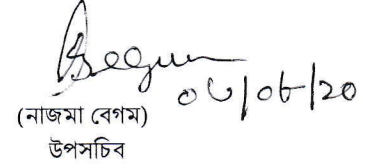 Begum ০৬/০৮/২০
(নাজমা বেগম)
উপসচিব